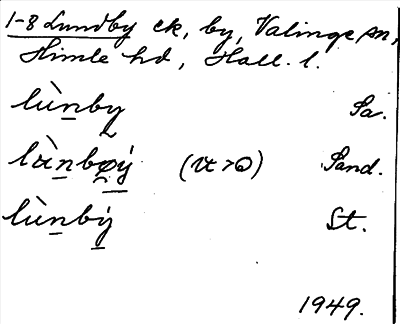 1-8 Lundby ck, by, Valinge sn,
Himle hd, Hall. l.
lùnby Sa.
Sand.
lùnbẏ St.
1949.